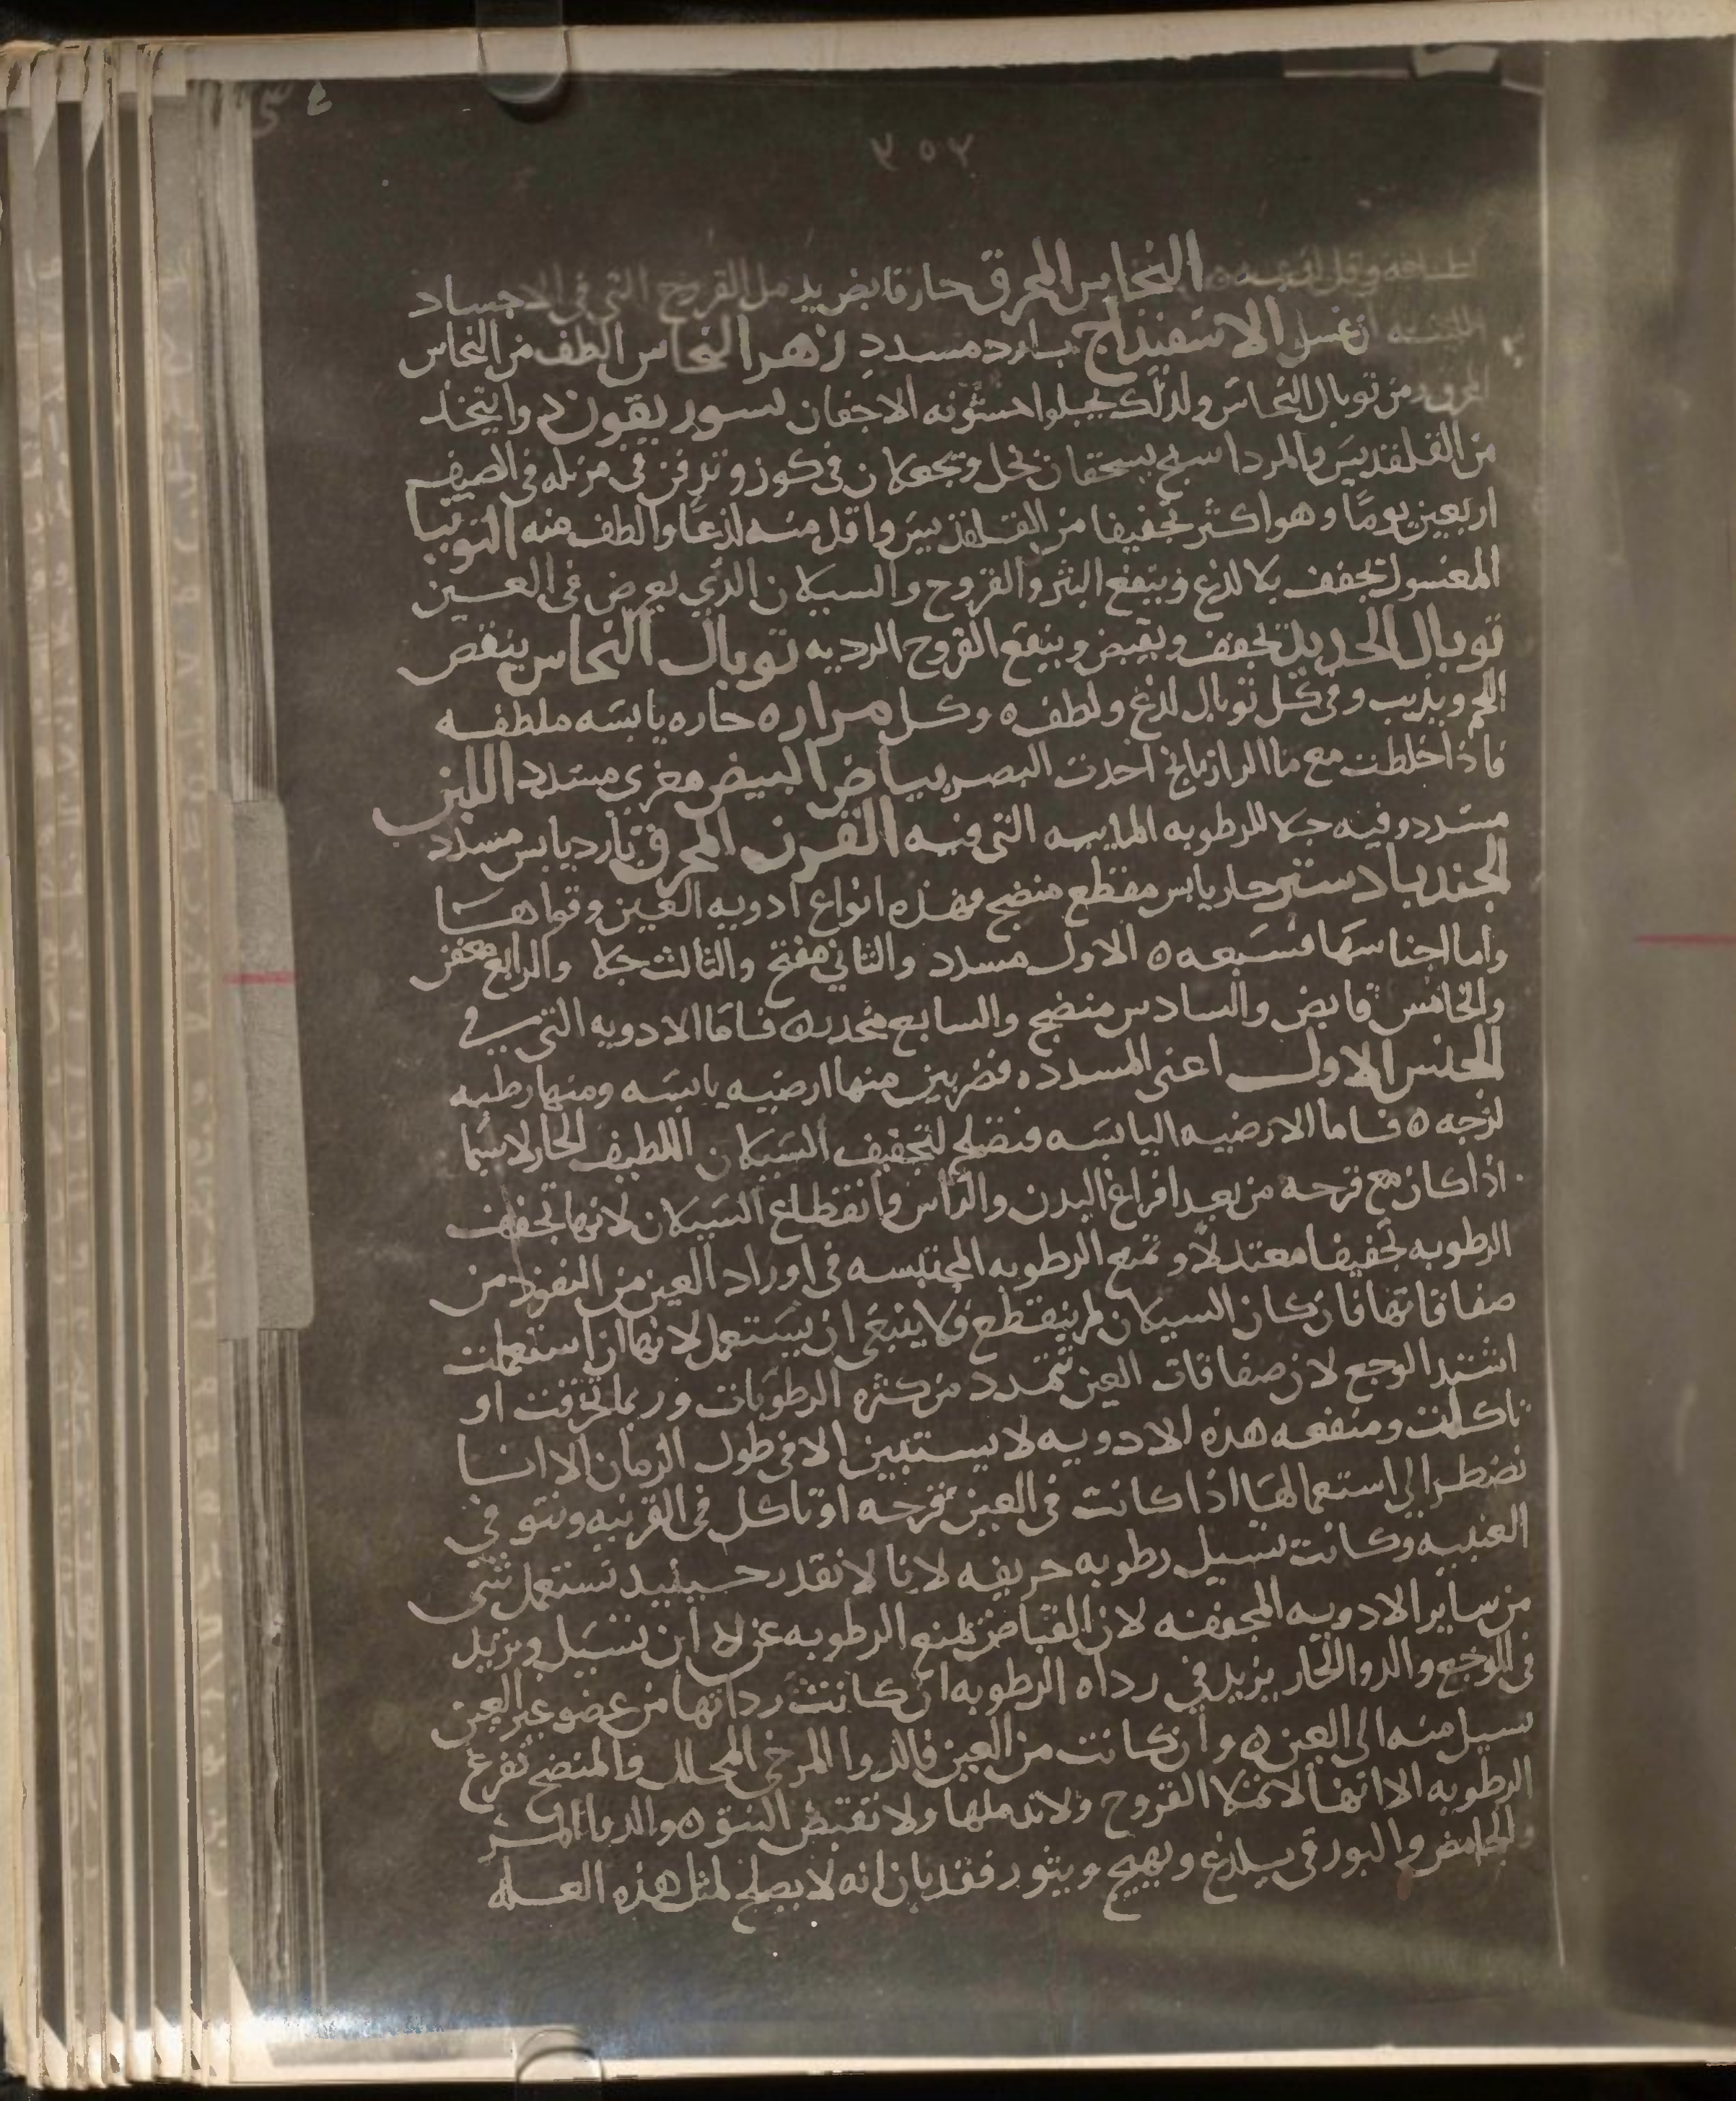 ٢٥٢
النحاس المحرق حار قابض يدمل القروح التي في الاجساد
اللينه ان غسل الاسفيداج بارد مسدد زهر النحاس الطف من النحاس
المحرق ومن توبال النحاس ولذلك يجلوا خشونه الاجفان سوريقون دوا يتخذ
من القلقديس والمرداسنج يسحقان بخل ويجعلان في كوز وتدفن في مزبله في الصيف
اربعين يومًا وهو اكثر تجفيفا من القلقديس واقل منه لذعًا والطف منه التوتيا
المغسول تجفف بلا لذع وينفع البثر والقروح والسيلان الذي يعرض في العين
توبال الحديد تجفف ويقبض وينفع القروح الرديه توبال النحاس ينقص
اللحم ويذيب وفي كل توبال لذع ولطف ه وكل مراره حاره يابسه ملطفه
فاذا خلطت مع ما الرازيانج احدت البصر بياض البيض مغري مسدد اللبن
مسدد وفيه جلا للرطوبه المايسه التي فيه القرن المحرق بارد يابس مسدد
الجندبادستر حار يابس مقطع منضج فهذه انواع ادويه العين وقواها
واما اجناسها فسبعه ه الاول مسدد والثاني مفتح والثالث جلا والرابع معفن
والخامس قابض والسادس منضج والسابع مخدر ه فاما الادويه التي في
الجنس الاول اعني المسدده فضربين منها ارضيه يابسه ومنها رطبه
لزجه ه فاما الارضيه اليابسه فتصلح لتجفيف السيلان اللطيف الحار لاسيما
اذا كان مع قرحه من بعد افراغ البدن والراس وانقطاع السيلان لانها تجفف
الرطوبه تجفيفا معتدلاً وتمنع الرطوبه المحتبسه في اوراد العين من النفوذ من
صفاقاتها فان كان السيلان لم ينقطع فلا ينبغي ان يستعمل لانها ان استعملت
اشتد الوجع لان صفاقات العين تتمدد من كثره الرطوبات وربما تخرقت او
تاكلت ومنفعه هذه الادويه لا يستبين الا في طول الزمان الا انا
نضطر الى استعمالها اذا كانت في العين قرحه او تاكل في القرنيه ونتو في
العنبيه وكانت تسيل رطوبه حريفه لانا لا نقدر حينيد نستعمل شي
من ساير الادويه المجففه لان القباض تمنع الرطوبه عن ان تسيل ويزيد
في الوجع والدوا الحار يزيد في رداه الرطوبه ان كانت رداتها من عضو غير العين
تسيل منه الى العين ه وان كانت من العين فالدوا المرخي المحلل والمنضج تفرغ
الرطوبه الا انها لا تملا القروح ولا تدملها ولا تقبض النتو ه والدوا
والحامض والبورقي يلذع ويهيج ويثور فقد بان انه لا يصلح لمثل هذه العله